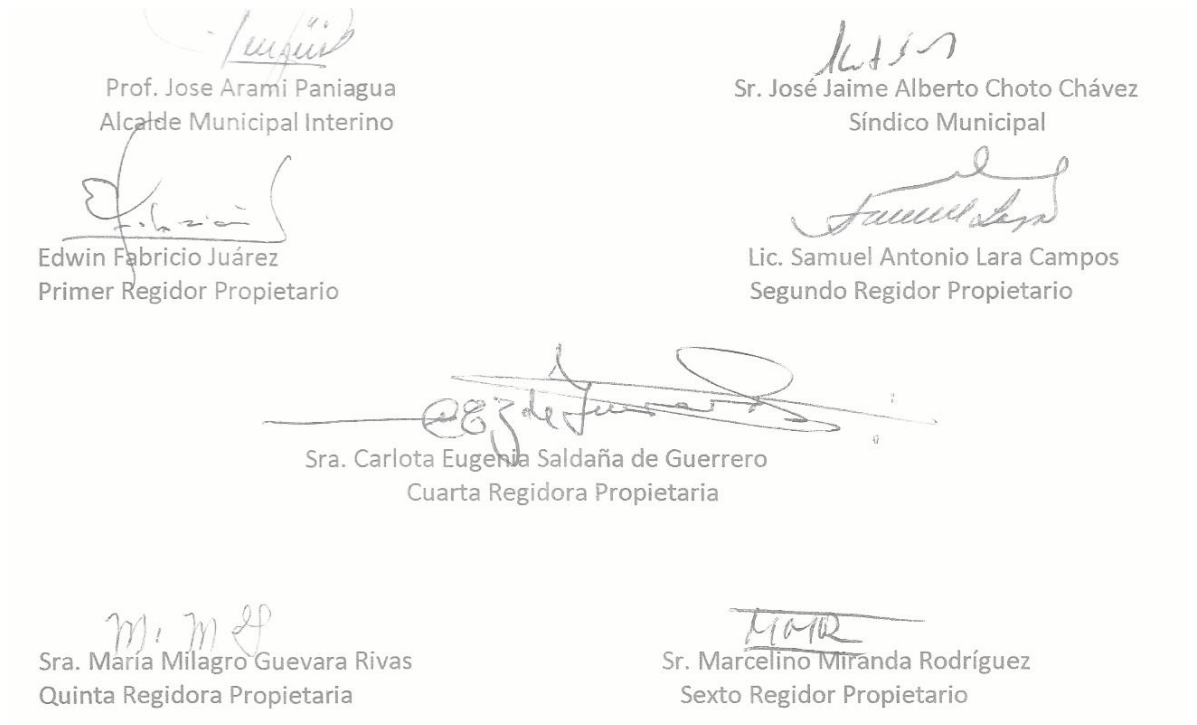 Prof. Jose Arami Paniagua
Alcalde Municipal Interino
Sr. José Jaime Alberto Choto Chávez
Síndico Municipal
Edwin Fabricio Juárez
Primer Regidor Propietario
Lic. Samuel Antonio Lara Campos
Segundo Regidor Propietario
Sra. Carlota Eugenia Saldaña de Guerrero
Cuarta Regidora Propietaria
Sra. María Milagro Guevara Rivas
Quinta Regidora Propietaria
Sr. Marcelino Miranda Rodríguez
Sexto Regidor Propietario